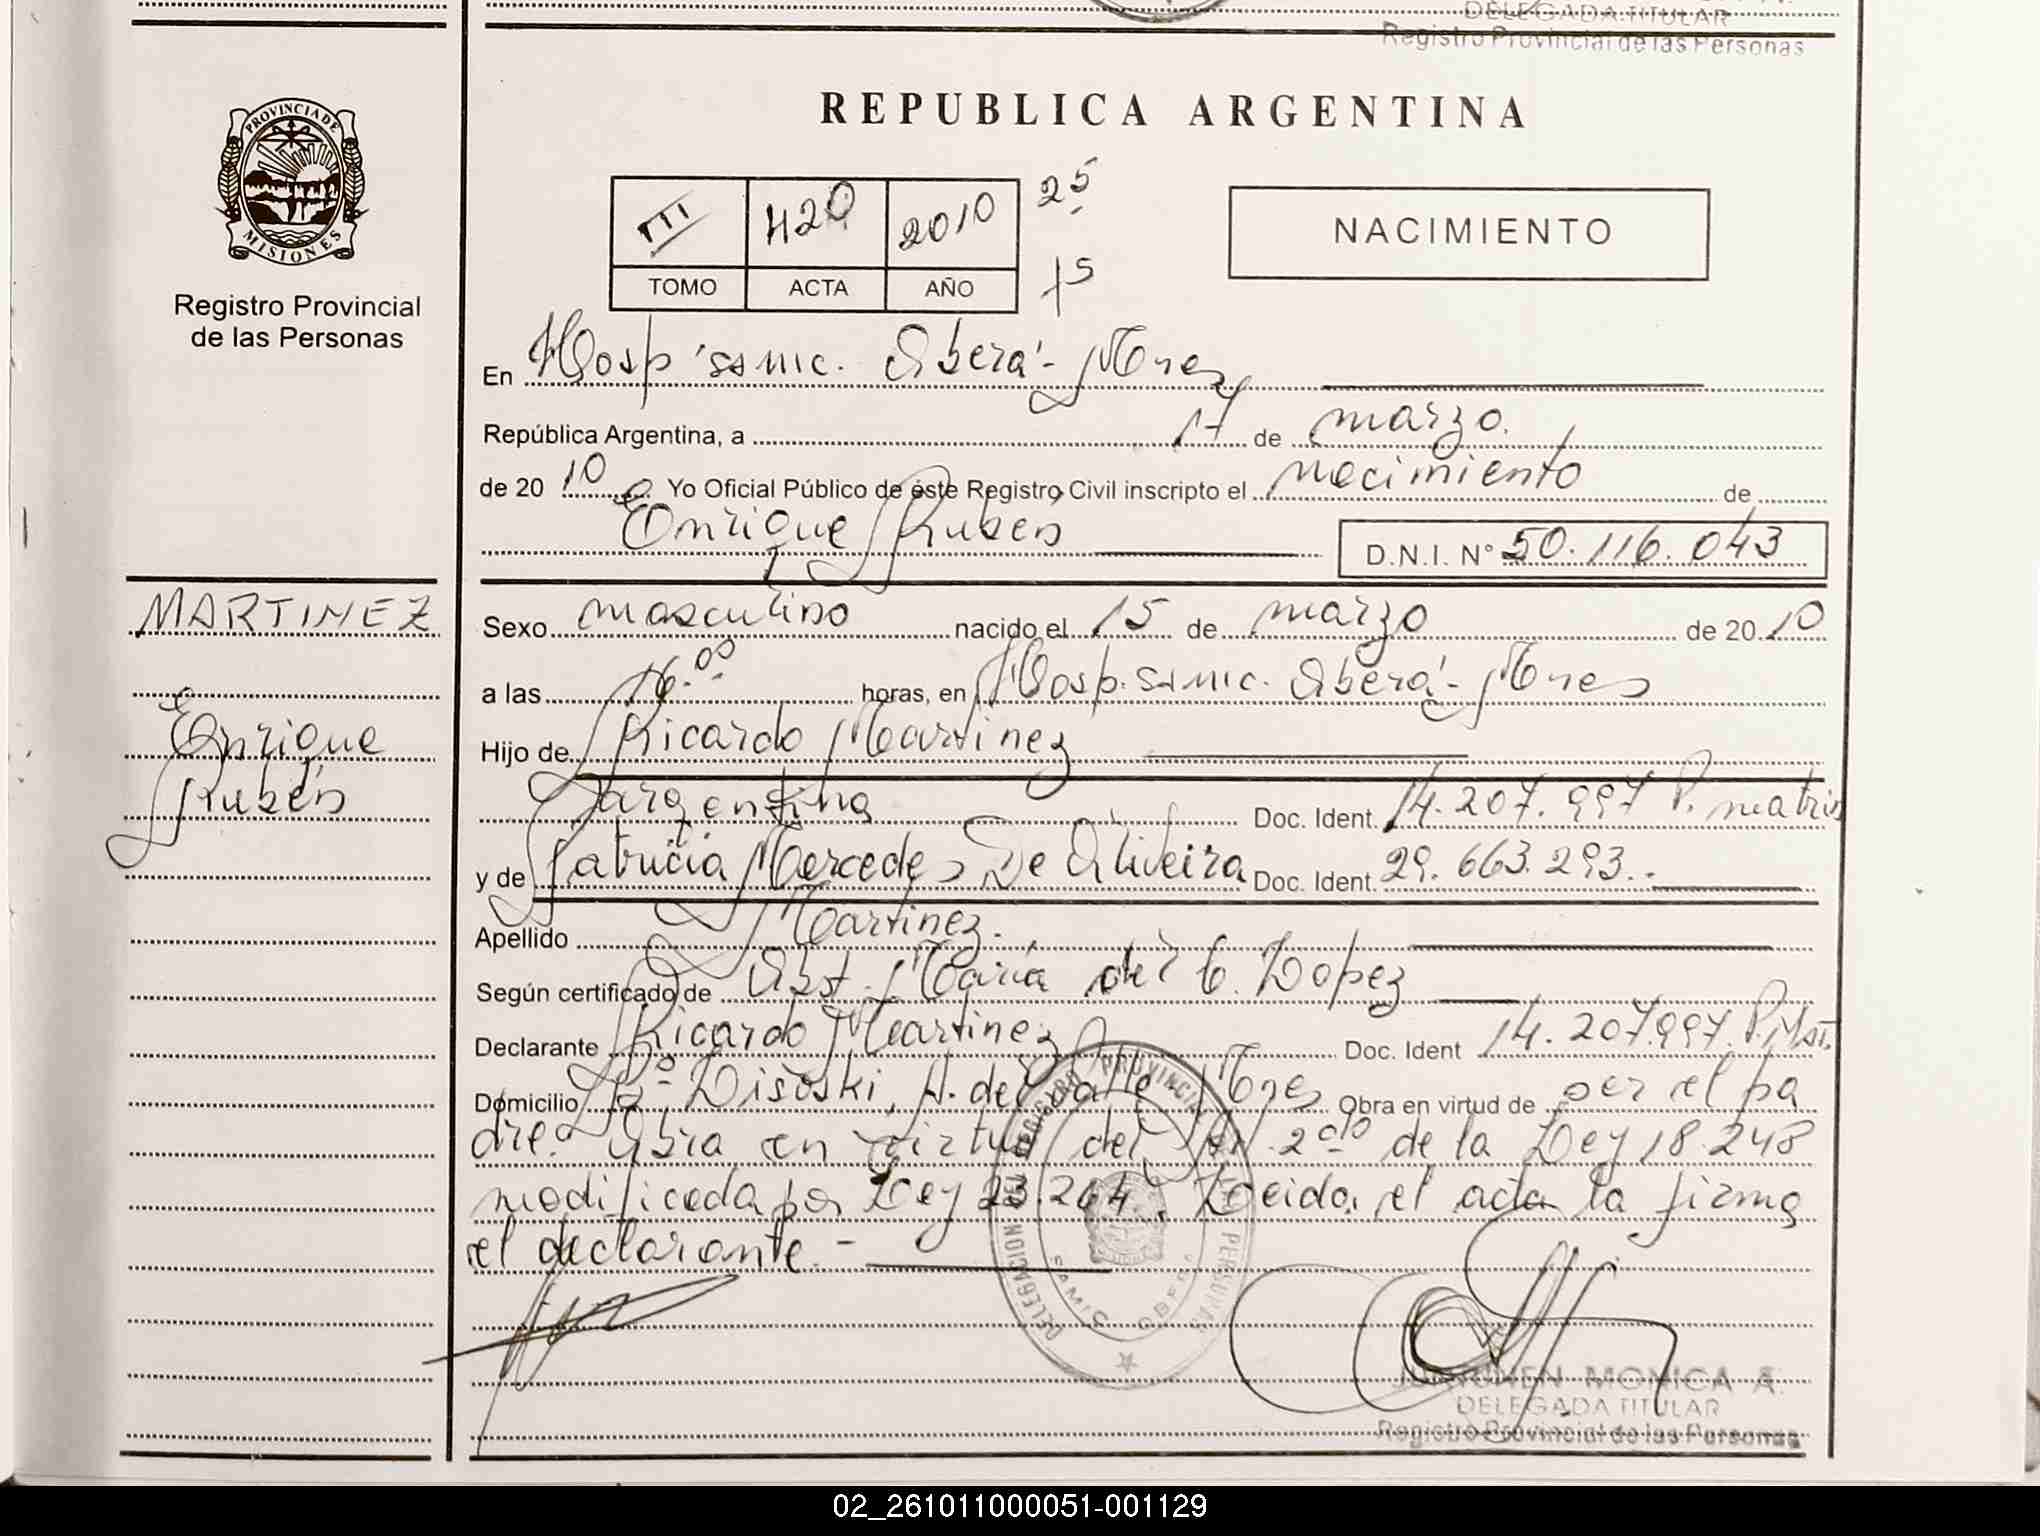 DELEGADA TITULAR
Registro Provincial de las Personas
PROVINCIA DE
MISIONES
Registro Provincial
de las Personas
REPUBLICA ARGENTINA
III 420 2010 25
TOMO ACTA AÑO 15
NACIMIENTO
En Hosp. samic. Oberá - Mnes
República Argentina, a 17 de marzo.
de 20 10 Yo Oficial Público de éste Registro Civil inscripto el nacimiento de
Enrique Rubén D.N.I. N° 50.116.043
MARTINEZ
Enrique
Rubén
Sexo masculino nacido el 15 de marzo de 20 10
a las 16.00 horas, en Hosp. samic. Oberá - Mnes
Hijo de Ricardo Martinez
argentina Doc. Ident. 14.207.997 P. matriz
y de Patricia Mercedes De Oliveira Doc. Ident. 29.663.293.
Apellido Martinez.
Según certificado de Obst. María del C. Lopez
Declarante Ricardo Martinez Doc. Ident 14.207.997. P. Mat.
Domicilio Bº Lisoski, A. del Valle Mnes Obra en virtud de ser el pa
dre. Obra en virtud del Art. 2do de la Ley 18.248
modificada por Ley 23.264. Leida el acta la firma
el declarante. -
DELEGACION DEL REGISTRO PROVINCIAL DE LAS PERSONAS
SAMIC OBERA
MONICA A.
DELEGADA TITULAR
Registro Provincial de las Personas
02_261011000051-001129